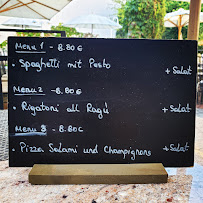 Menu 1 - 8.80 €
• Spaghetti mit Pesto + Salat
Menu 2 - 8.80 €
• Rigatoni all Ragú + Salat
Menu 3 - 8.80 €
• Pizza Salami und Champignons + Salat